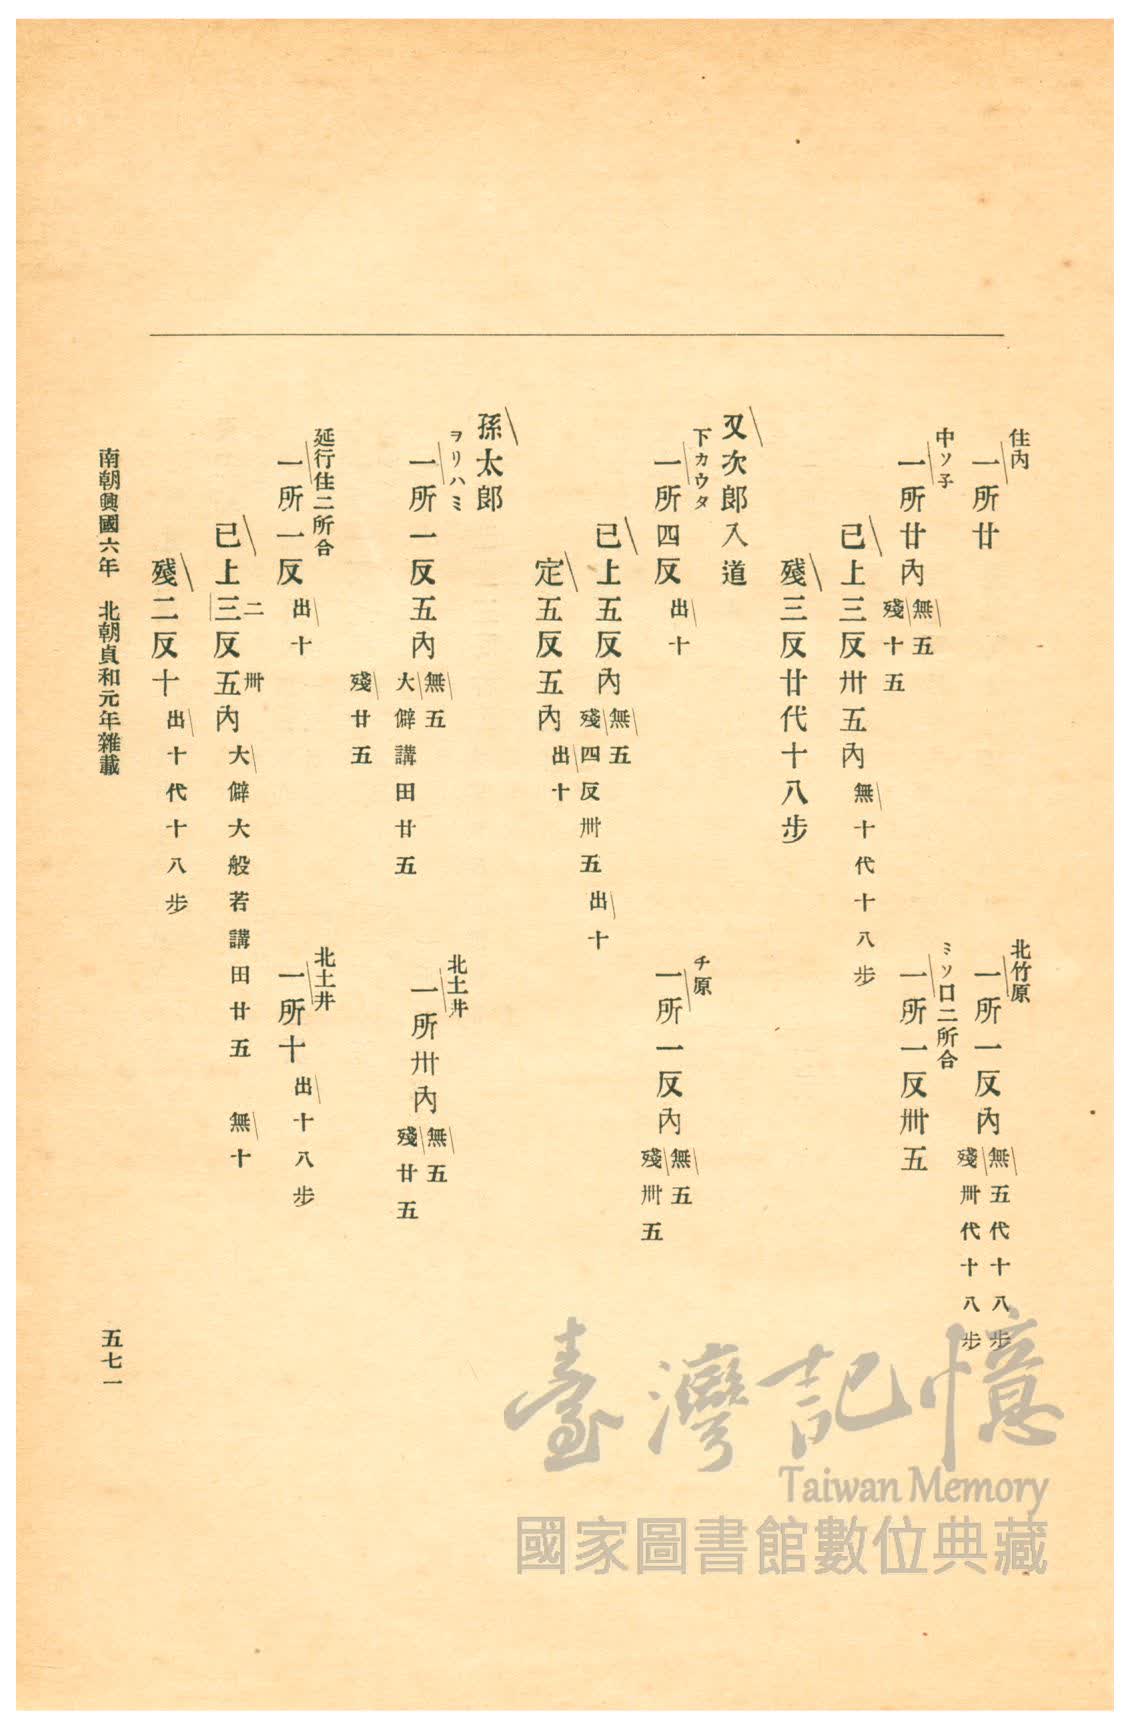 住內
一所廿
北竹原
一所一反內
無五代十八步
殘卅代十八步
中ソ子
一所廿內
無五
殘十五
ミソ口二所合
一所一反卌五
已上三反卅五內
無十代十八步
殘三反廿代十八步
又次郎入道
下カウタ
一所四反
出十
チ原
一所一反內
無五
殘卌五
已上五反內
無五
殘四反卌五
出十
定五反五內
出十
孫太郎
ヲリハミ
一所一反五內
無五
大僻講田廿五
殘廿五
北土井
一所卅內
無五
殘廿五
延行住二所合
一所一反
出十
北土井
一所十
出十八步
已上三反五內
二
卌
大僻大般若講田廿五
無十
殘二反十
出十代十八步
南朝興國六年 北朝貞和元年雜載
五七一
臺灣記憶
Taiwan Memory
國家圖書館數位典藏